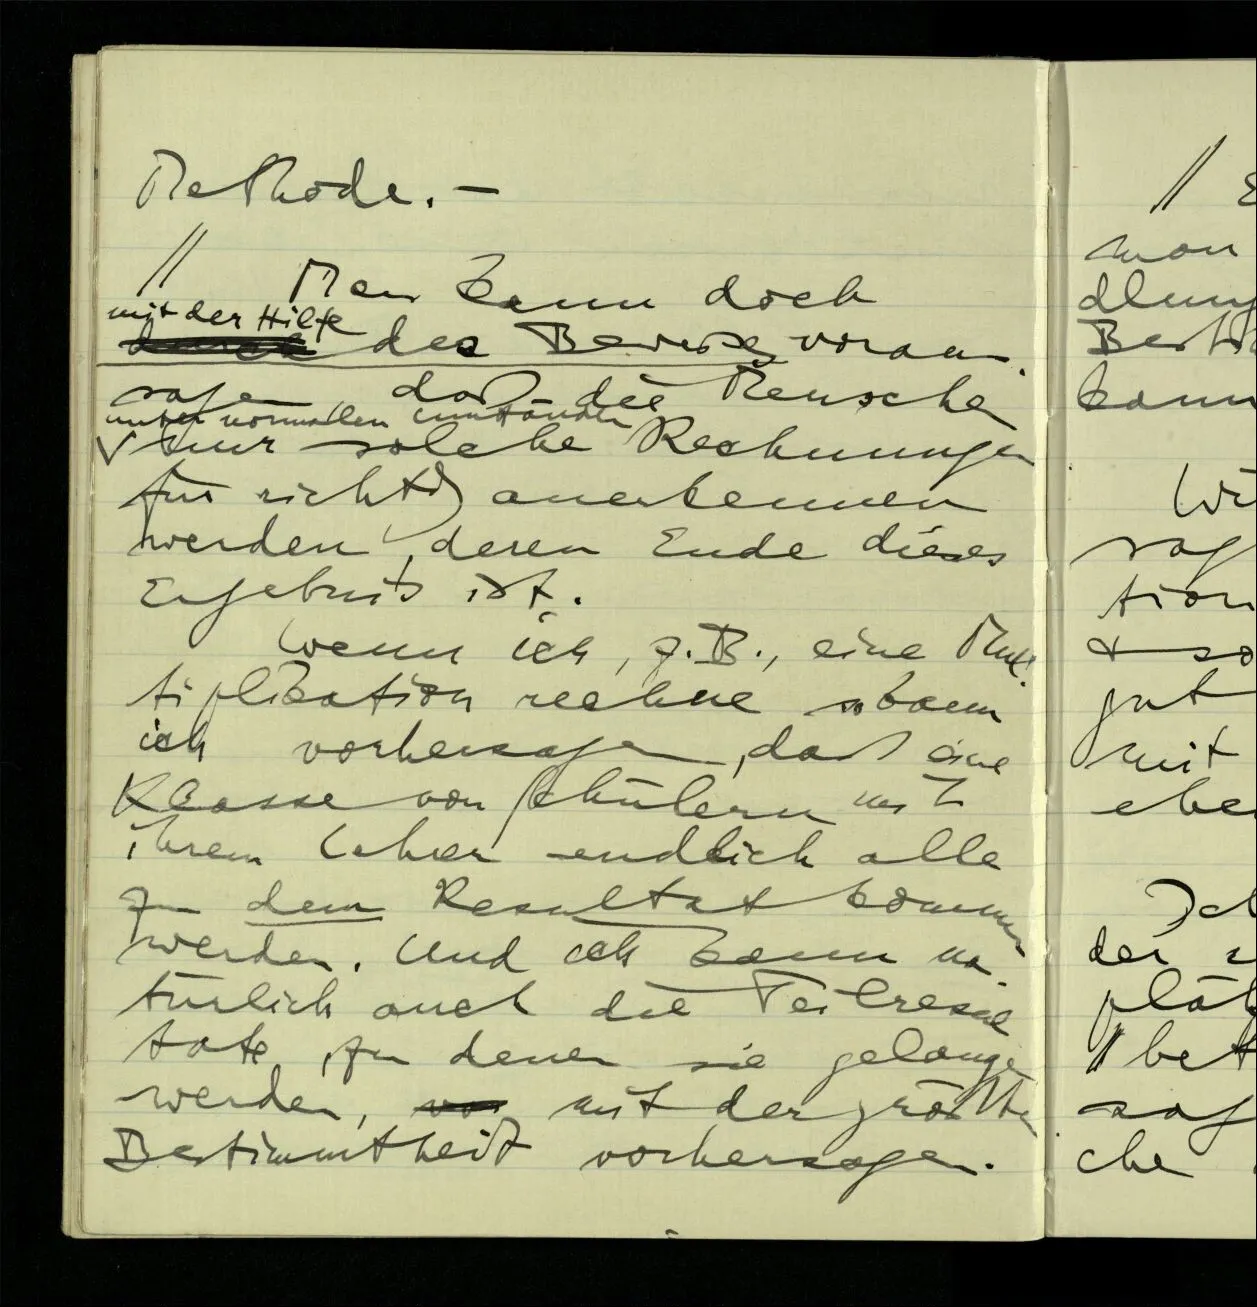 Methode. –
// Man kann doch
mit der Hilfe
durch des Beweises voraus-
sagen daß die Menschen
unter normalen Umständen
nur solche Rechnungen
für richtig anerkennen
werden, deren Ende dieses
Ergebnis ist.
Wenn ich, z.B., eine Mul-
tiplikation rechne so kann
ich vorhersagen, daß eine
Klasse von Schülern mit
ihrem Lehrer endlich alle
zu dem Resultat kommen
werden. Und ich kann na-
türlich auch die Teilresul
tate, zu denen sie gelangen
werden, mit der größten
Bestimmtheit vorhersagen.
// E
man
dlung
kann
Wi
sag
tion
& so
gut
mit
eben
Ich
der
// bet
sag
che